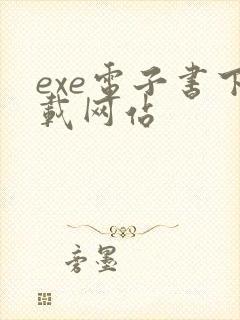 exe電子書下
載网佔
旁墨